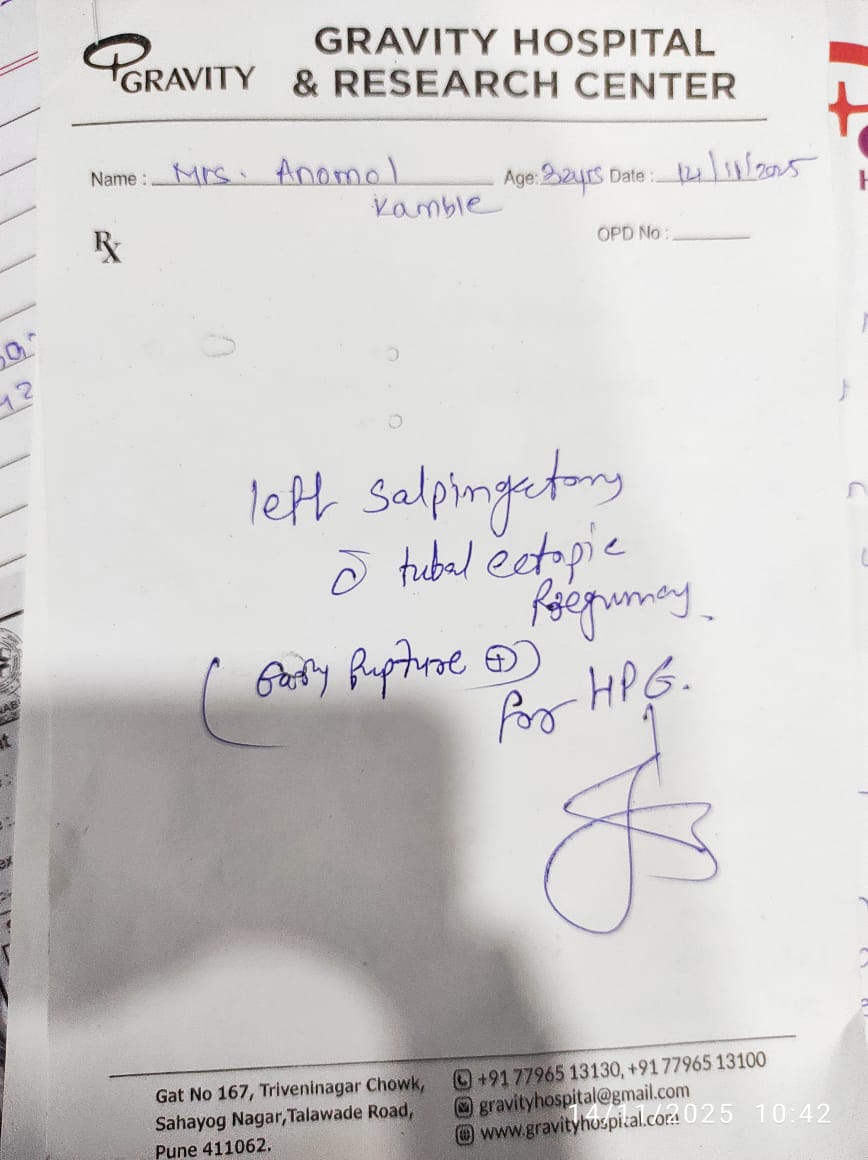 GRAVITY
GRAVITY HOSPITAL
& RESEARCH CENTER
Name : Mrs. Anomol Age: 32yrs Date : 14/11/2025
Kamble
Rx
OPD No :
left salpingectomy
c̄ tubal ectopic
Pregnancy.
(Early Rupture ⊕)
for HPE.
Gat No 167, Triveninagar Chowk,
Sahayog Nagar, Talawade Road,
Pune 411062.
+91 77965 13130, +91 77965 13100
gravityhospital@gmail.com
www.gravityhospital.com
14/11/2025 10:42